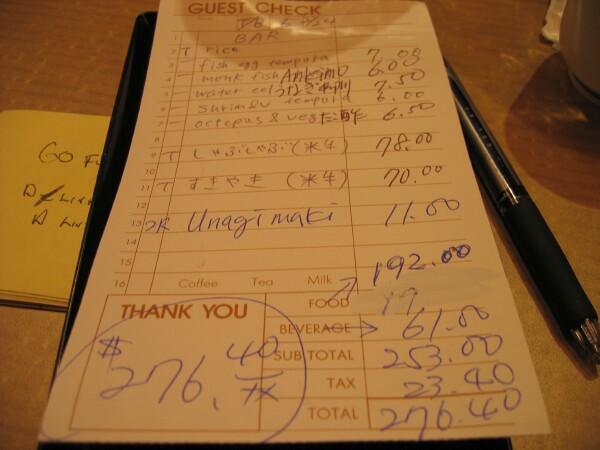 GUEST CHECK
BAR
1 T rice
fish egg tempura 7.00
monk fish Ankimo 6.00
water eel 7.50
shrimp tempura 6.00
7 octopus & veg 6.50
8
9 T しゃぶしゃぶ (米牛) 78.00
10
11 T すきやき (米牛) 70.00
12
13 2R Unagimaki 11.00
14
15
16 Coffee Tea Milk 192.00
THANK YOU
FOOD
BEVERAGE 61.00
SUB TOTAL 253.00
TAX 23.40
TOTAL 276.40
$276.40 TX
GO